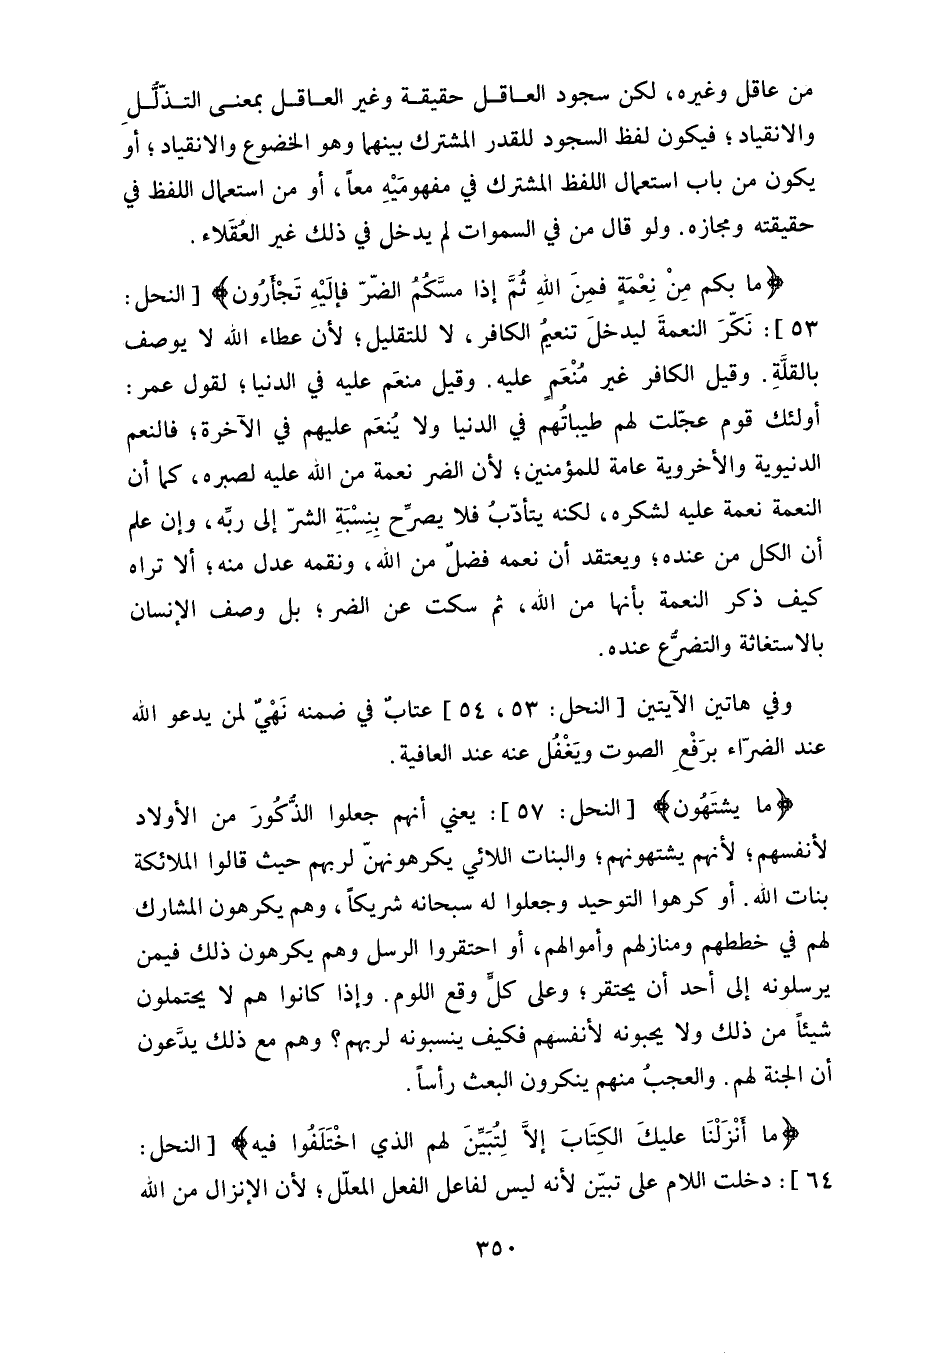 من عاقل وغيره، لكن سجود العاقل حقيقة وغير العاقل بمعنى التذلُّلِ
والانقياد؛ فيكون لفظ السجود للقدر المشترك بينهما وهو الخضوع والانقياد؛ أو
يكون من باب استعمال اللفظ المشترك في مفهومَيْهِ معاً، أو من استعمال اللفظ في
حقيقته ومجازه. ولو قال من في السموات لم يدخل في ذلك غير العُقَلاء.
﴿ما بكم مِنْ نِعْمَةٍ فمِنَ اللهِ ثُمَّ إذا مسَّكُمُ الضرّ فإلَيْهِ تَجْأَرُون﴾ [النحل:
٥٣]: نَكّرَ النعمةَ ليدخلَ تنعيمُ الكافر، لا للتقليل؛ لأن عطاء الله لا يوصف
بالقلَّةِ. وقيل الكافر غير مُنْعَمٍ عليه. وقيل منعَم عليه في الدنيا؛ لقول عمر:
أولئك قوم عجّلت لهم طيباتُهم في الدنيا ولا يُنعَم عليهم في الآخرة؛ فالنعم
الدنيوية والأخروية عامة للمؤمنين؛ لأن الضر نعمة من الله عليه لصبره، كما أن
النعمة نعمة عليه لشكره، لكنه يتأدّبُ فلا يصرِّح بِنِسْبَةِ الشرّ إلى ربِّه، وإن علم
أن الكل من عنده؛ ويعتقد أن نعمه فضلٌ من الله، ونقمه عدل منه؛ ألا تراه
كيف ذكر النعمة بأنها من الله، ثم سكت عن الضر؛ بل وصف الإنسان
بالاستغاثة والتضرُّع عنده.
وفي هاتين الآيتين [النحل: ٥٣، ٥٤] عتابٌ في ضمنه نَهْيٌ لمن يدعو الله
عند الضرّاء برَفْعِ الصوت ويَغْفُل عنه عند العافية.
﴿ما يشتَهُون﴾ [النحل: ٥٧]: يعني أنهم جعلوا الذُّكُورَ من الأولاد
لأنفسهم؛ لأنهم يشتهونهم؛ والبنات اللائي يكرهونهنّ لربهم حيث قالوا الملائكة
بنات الله. أو كرهوا التوحيد وجعلوا له سبحانه شريكاً، وهم يكرهون المشارك
لهم في خططهم ومنازلهم وأموالهم، أو احتقروا الرسل وهم يكرهون ذلك فيمن
يرسلونه إلى أحد أن يحتقر؛ وعلى كلٍّ وقع اللوم. وإذا كانوا هم لا يحتملون
شيئاً من ذلك ولا يحبونه لأنفسهم فكيف ينسبونه لربهم؟ وهم مع ذلك يدَّعون
أن الجنة لهم. والعجبُ منهم ينكرون البعث رأساً.
﴿ما أَنْزَلْنَا عليكَ الكِتَابَ إلاَّ لِتُبَيِّنَ لهم الذي اخْتَلَفُوا فيه﴾ [النحل:
٦٤]: دخلت اللام على تبيّن لأنه ليس لفاعل الفعل المعلّل؛ لأن الإنزال من الله
٣٥٠